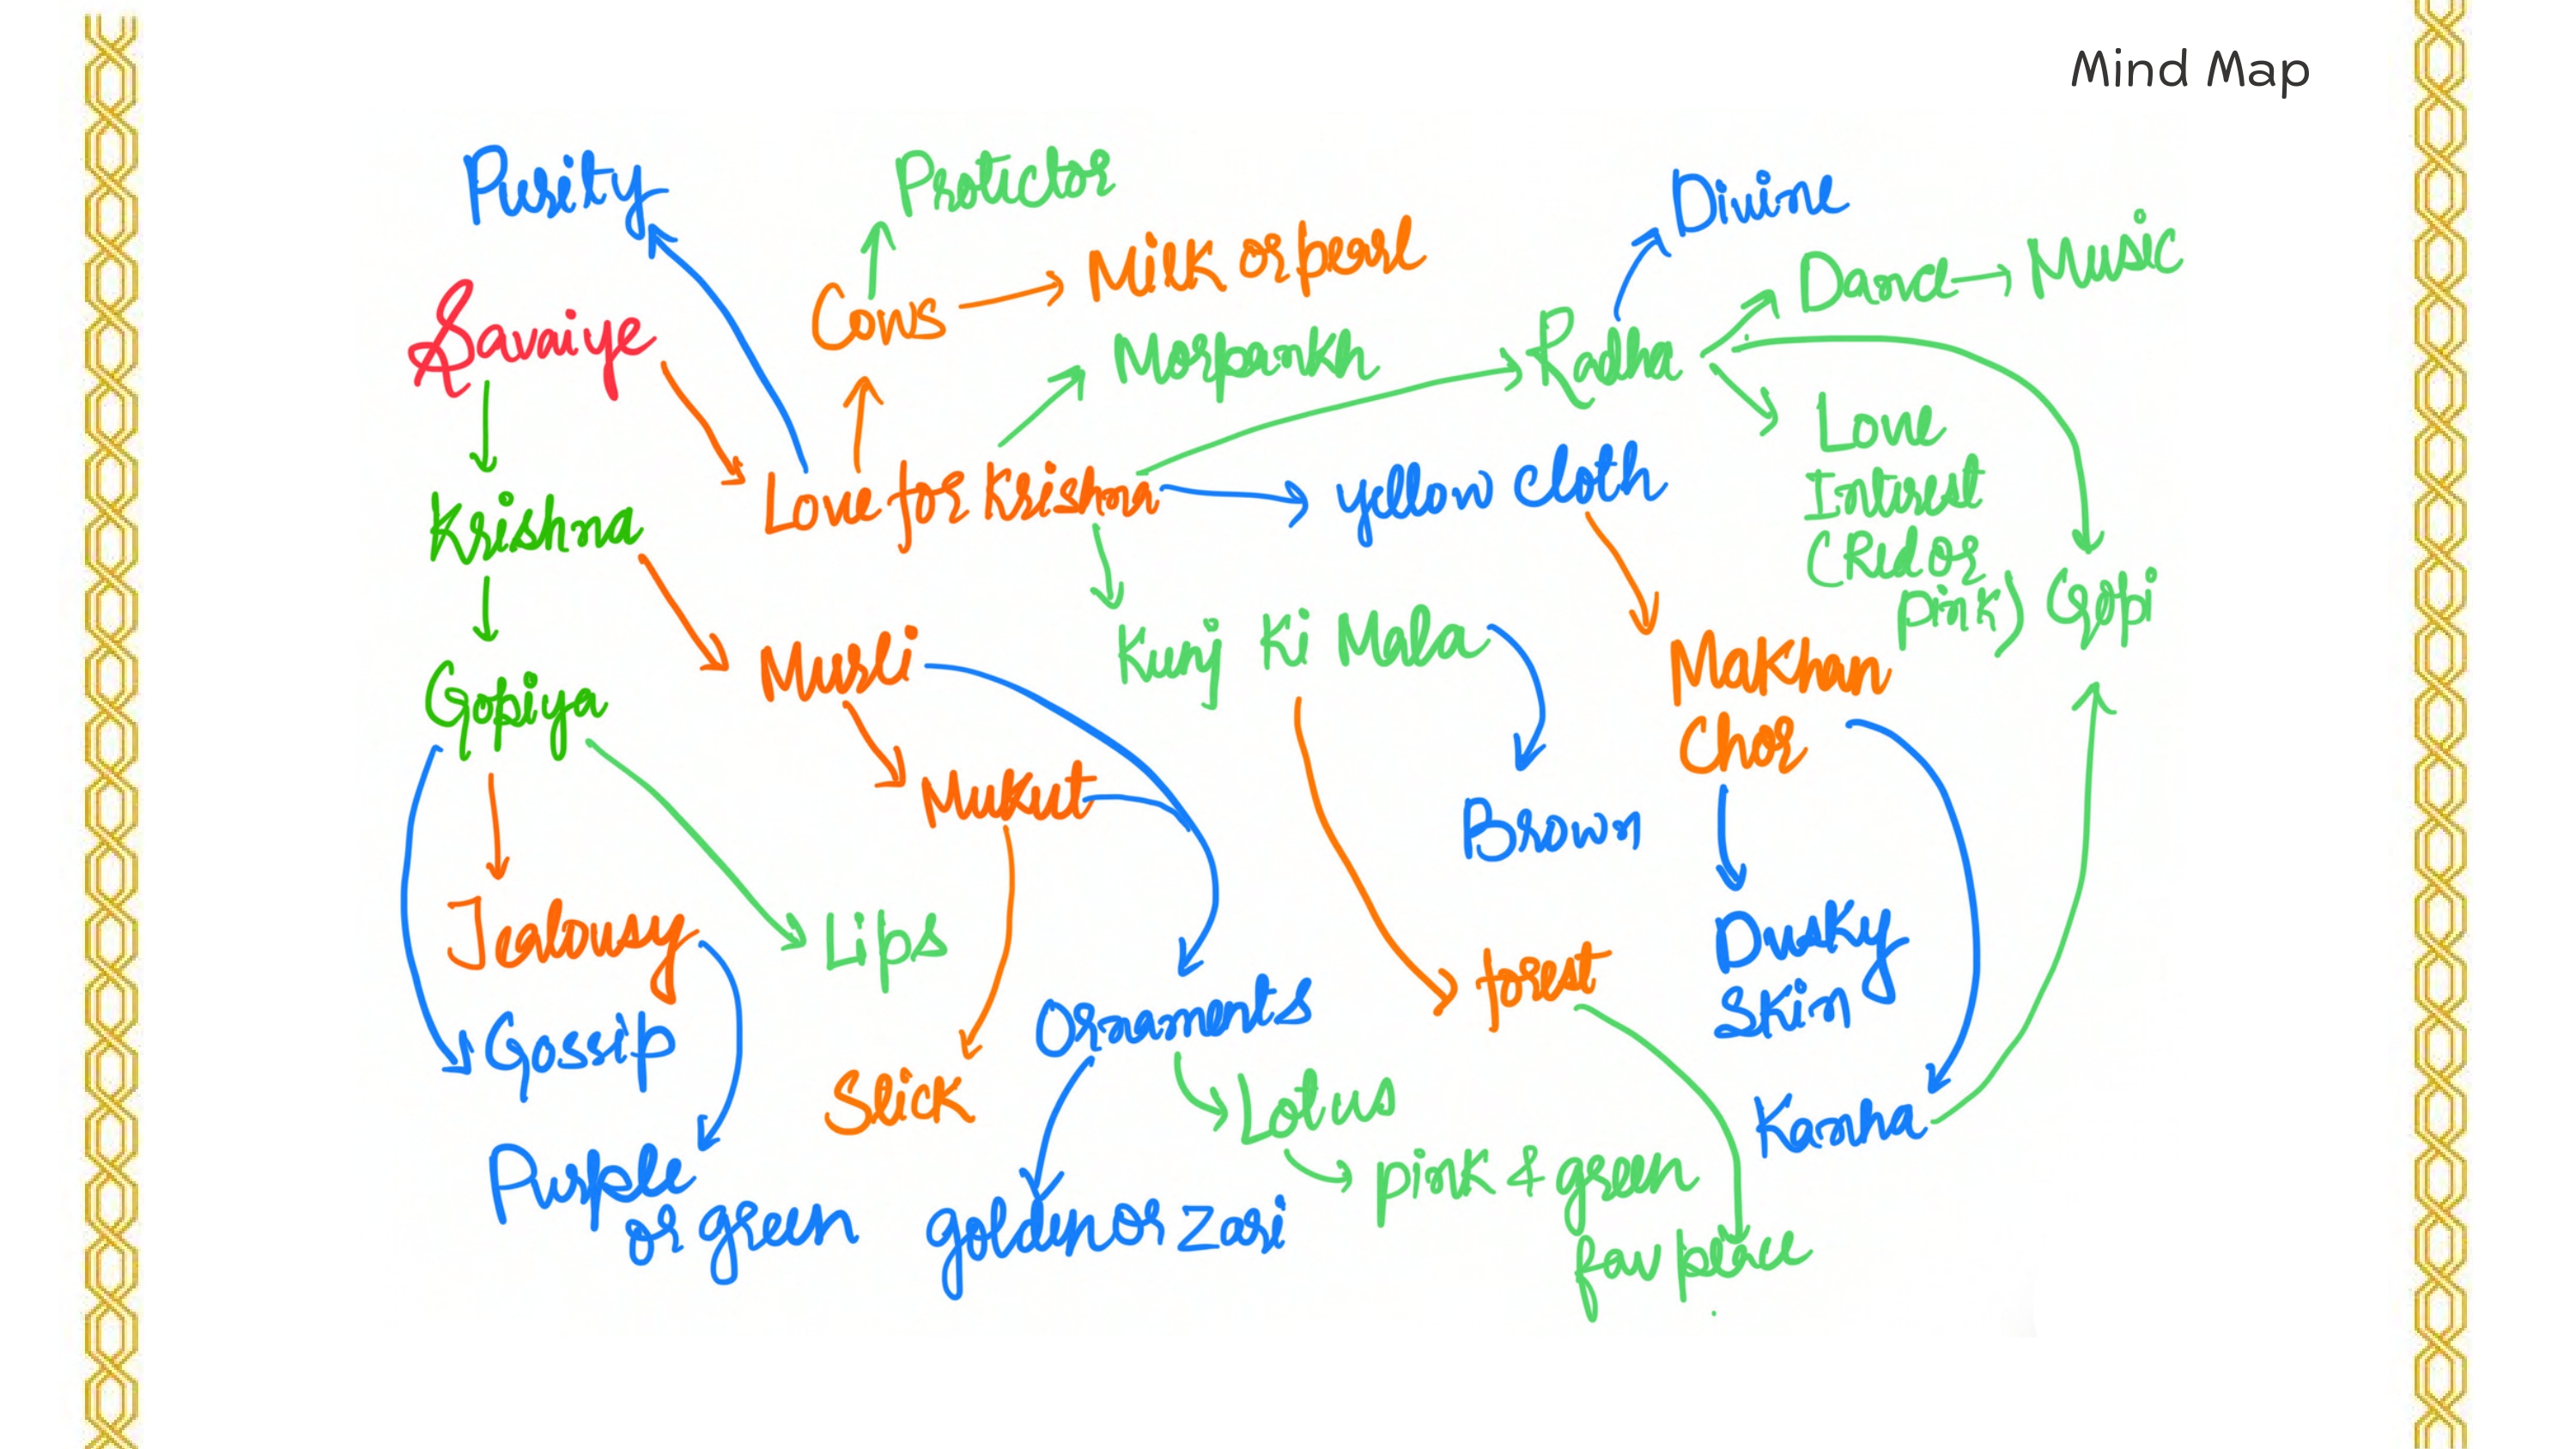 Mind Map
Purity
Protictor
Divine
Milk or pearl
Dance
Music
Savaiye
Cows
Morpankh
Radha
Love
Intirest
(Red or
pink)
Krishna
Love for Krishna
yellow cloth
Gopi
Gopiya
Murli
Kunj Ki Mala
Makhan
Chor
Mukut
Brown
Jealousy
Lips
forest
Dusky
Skin
Gossip
Ornaments
Slick
Lotus
Kanha
Purple
or green
golden or zari
pink & green
fav place